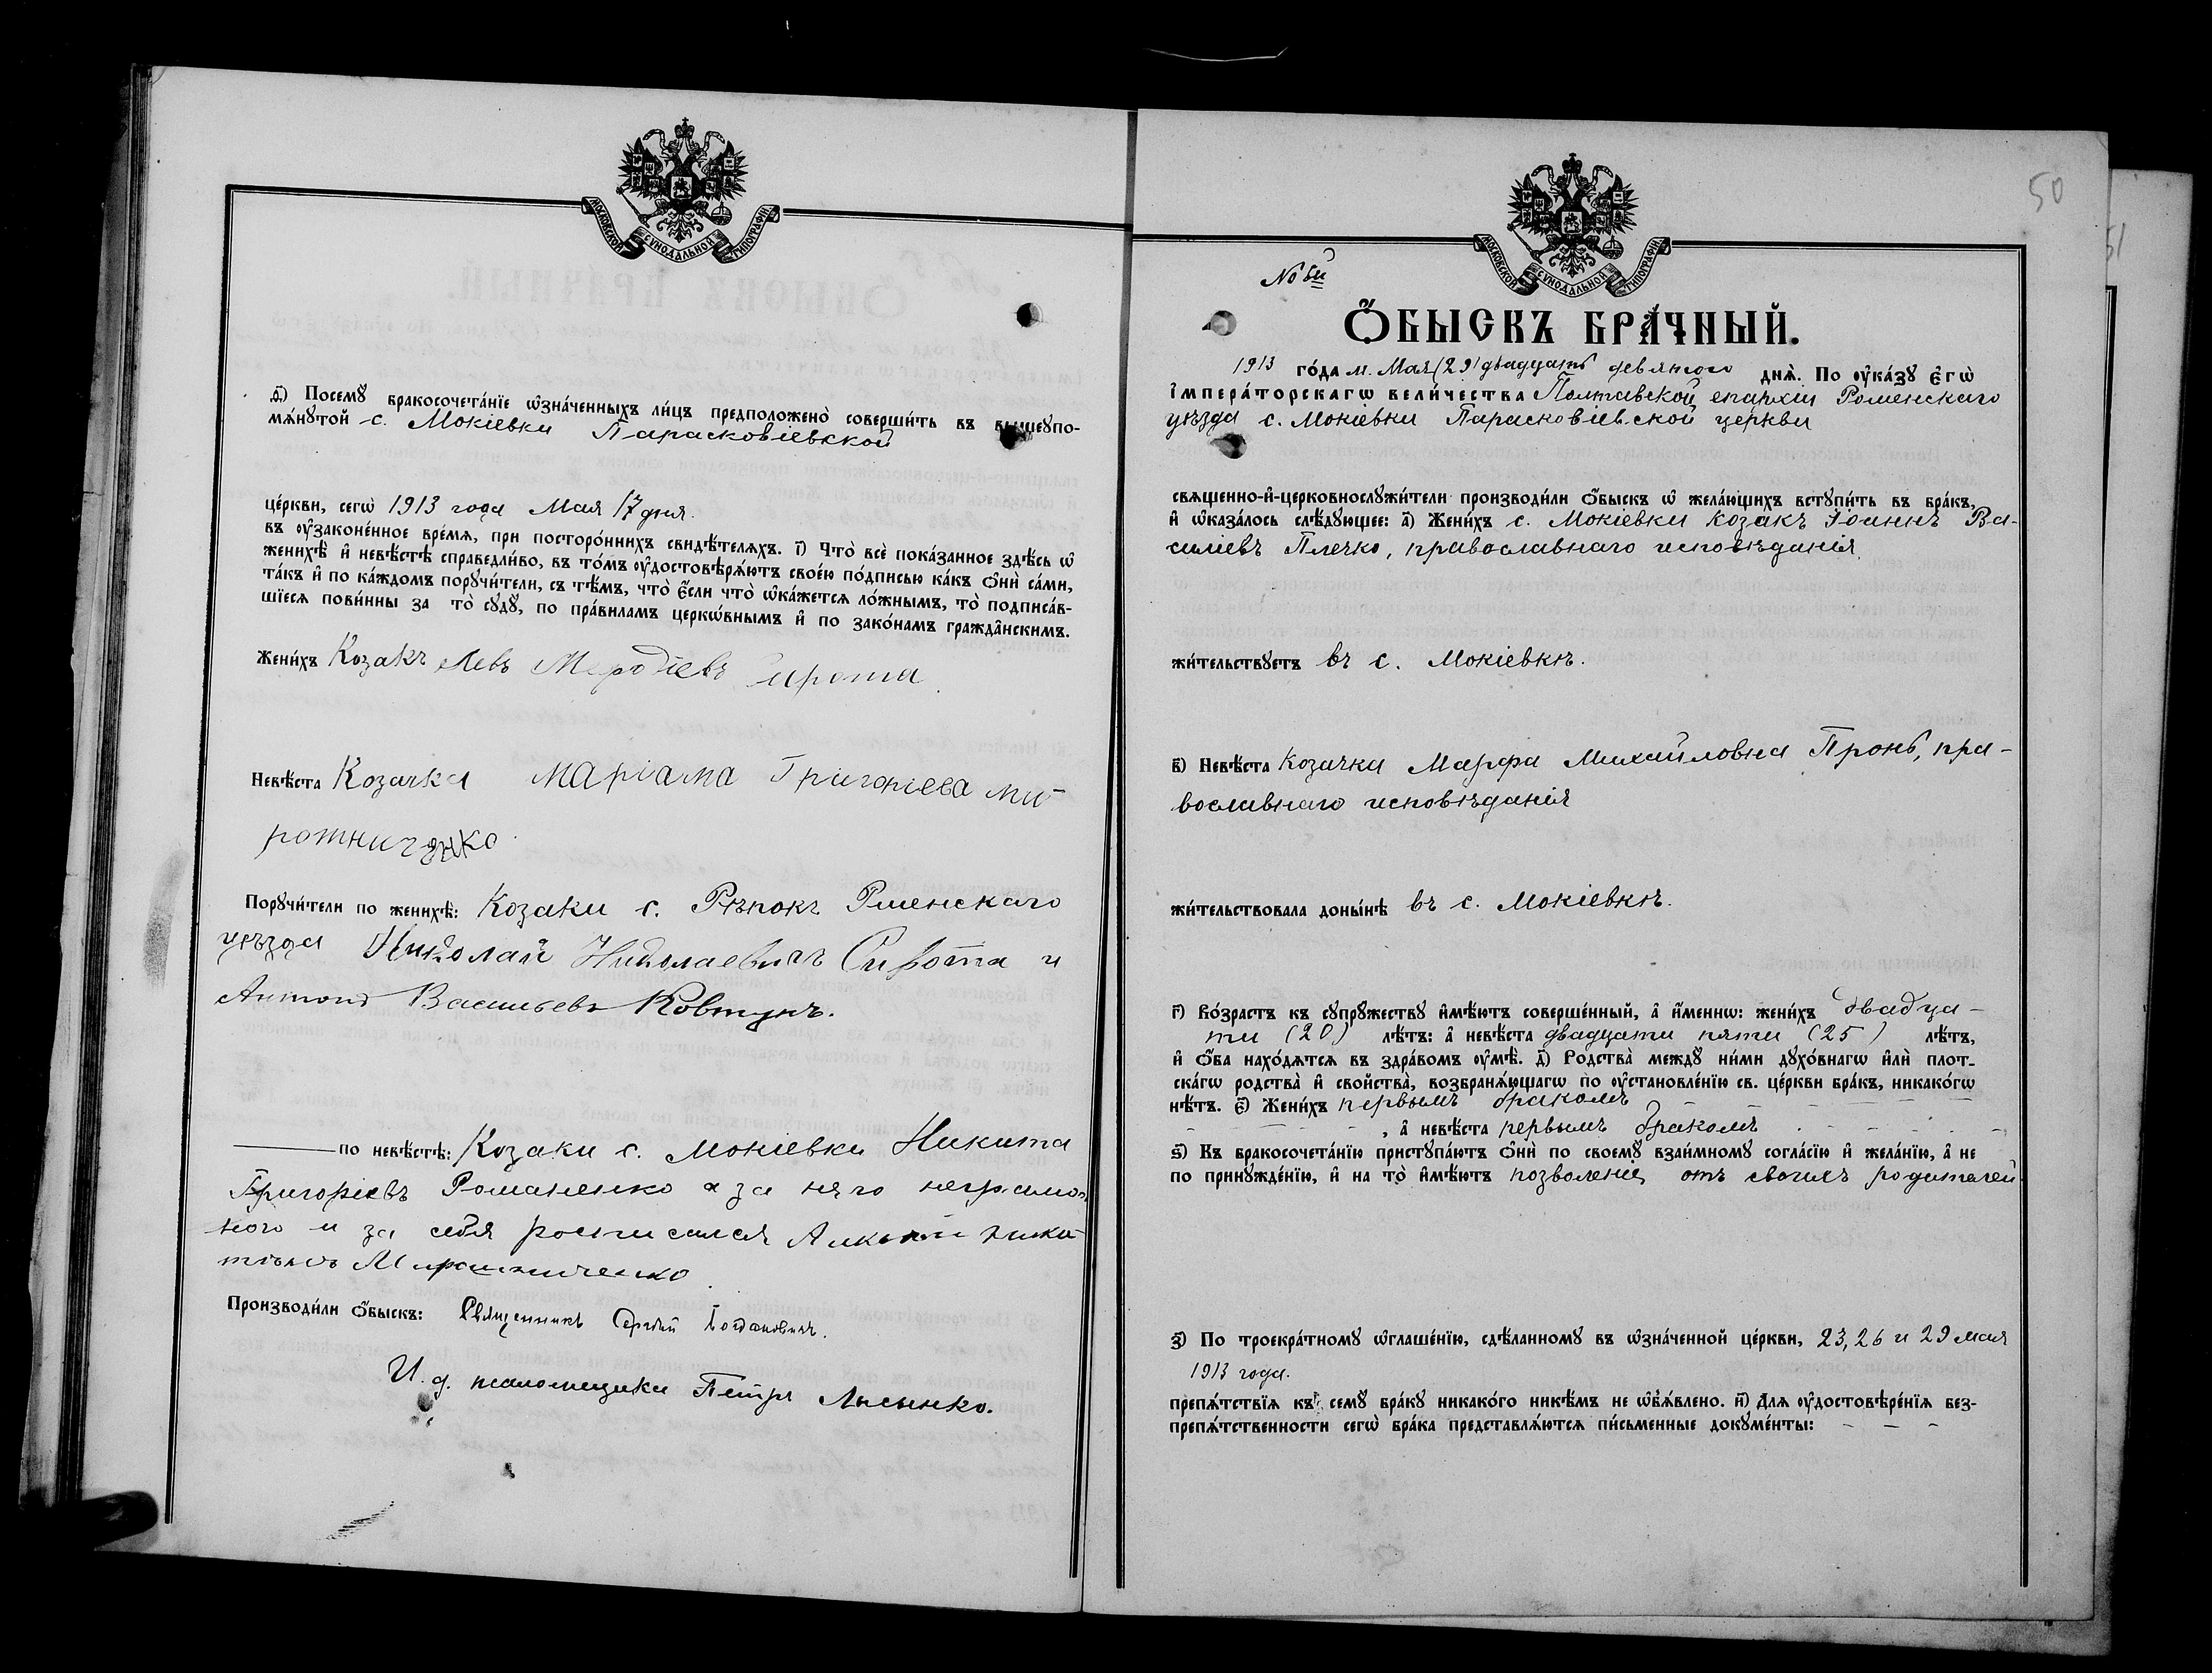 МОСКОВСКОЙ СУНОДАЛЬНОЙ ТИПОГРАФІИ
ѳ҃) Посемꙋ бракосочета́нїе ѡ҆зна́ченныхъ ли́цъ предположено̀ соверши́ть въ вышеꙋпо-
мѧ́нꙋтой с. Мокіевки Парасковіевской
це́ркви, сегѡ̀ 1913 года Мая 17 дня.
въ ᲂу҆законе́нное вре́мѧ, при посторо́ннихъ свидѣ́телѧхъ. і҃) Что̀ всѐ пока́занное здѣ́сь ѡ҆
женихѣ̀ и҆ невѣ́стѣ справедли́во, въ то́мъ ᲂу҆достовѣрѧ́ютъ свое́ю по́дписью ка́къ ѻ҆нѝ са́ми,
та́къ и҆ по ка́ждомъ порꙋчи́тели, съ тѣ́мъ, что̀ є҆́сли что̀ ѡ҆ка́жетсѧ ло́жнымъ, то̀ подписа́в-
шїесѧ пови́нны за то̀ сꙋдꙋ̀, по пра́виламъ церкѡ́внымъ и҆ по зако́намъ гражда́нскимъ.
Жени́хъ Козакъ Левъ Меѳодіевъ Сирота
Невѣ́ста Козачка Маріама Григориева Ми-
ротниченко
Порꙋчи́тели по женихѣ̀: Козаки с. Рѣпокъ Рменскаго
уѣзда Николай Николаевичъ Сирота и
Антонъ Васильевъ Ковтунъ.
по невѣ́стѣ: Козаки с. Мокіевки Никита
Григоріевъ Романенко а за него неграмот
ного и за себя росписался Ники
Мирошниченко
Производи́ли ѻ҆́быскъ: Священникъ Сергѣй Богдановичъ.
И. д. псаломщика Петръ Лысенко.
50
51
МОСКОВСКОЙ СУНОДАЛЬНОЙ ТИПОГРАФІИ
№ 6й
Ѻ҆́БЫСКЪ БРА́ЧНЫЙ.
1913 го́да м. Мая (29) двадцать девятого днѧ̀. По ᲂу҆ка́зꙋ є҆гѡ̀
і҆мпера́торскагѡ вели́чества Полтавской епархіи Роменскаго
уѣзда с. Мокіевки Парасковіевской церкви
свѧщенно-и҆-церковнослꙋжи́тели производи́ли ѻ҆́быскъ ѡ҆ жела́ющихъ встꙋпи́ть въ бра́къ,
и҆ ѡ҆каза́лось слѣ́дꙋющее: а҃) Жени́хъ с. Мокіевки козакъ Іоаннъ Ва-
силіевъ Плечко, православнаго исповѣданія
жи́тельствꙋетъ въ с. Мокіевкѣ.
в҃) Невѣ́ста козачка Марфа Михайловна Пронь, пра-
вославнаго исповѣданія
жи́тельствовала доны́нѣ въ с. Мокіевкѣ.
г҃) Во́зрастъ къ сꙋпрꙋжествꙋ и҆мѣ́ютъ соверше́нный, а҆ и҆́меннѡ: жени́хъ двадца-
ти (20) лѣ́тъ: а҆ невѣ́ста двадцати пяти (25) лѣ́тъ,
и҆ ѻ҆́ба нахо́дѧтсѧ въ здра́вомъ ᲂу҆мѣ̀. д҃) Родства̀ междꙋ ни́ми дꙋхо́внагѡ и҆лѝ плот-
ска́гѡ родства̀ и҆ свойства̀, возбранѧ́ющагѡ по ᲂу҆становле́нїю св. це́ркви бра́къ, никако́гѡ
нѣ́тъ. є҃) Жени́хъ первымъ бракомъ
, а҆ невѣ́ста первымъ бракомъ
ѕ҃) Къ бракосочета́нїю пристꙋпа́ютъ ѻ҆нѝ по своемꙋ̀ взаи́мномꙋ согла́сїю и҆ жела́нїю, а҆ не
по принꙋжде́нїю, и҆ на то̀ и҆мѣ́ютъ позволеніе отъ своихъ родителей
з҃) По троекра́тномꙋ ѡ҆глаше́нїю, сдѣ́ланномꙋ въ ѡ҆зна́ченной це́ркви, 23, 26 и 29 мая
1913 года.
препѧ́тствїѧ къ семꙋ̀ бра́кꙋ никако́гѡ никѣ́мъ не ѡ҆б̾ѧ́влено. и҃) Длѧ ᲂу҆достовѣре́нїѧ без-
препѧ́тственности сегѡ̀ бра́ка представлѧ́ютсѧ пи́сьменные докꙋме́нты: - - -